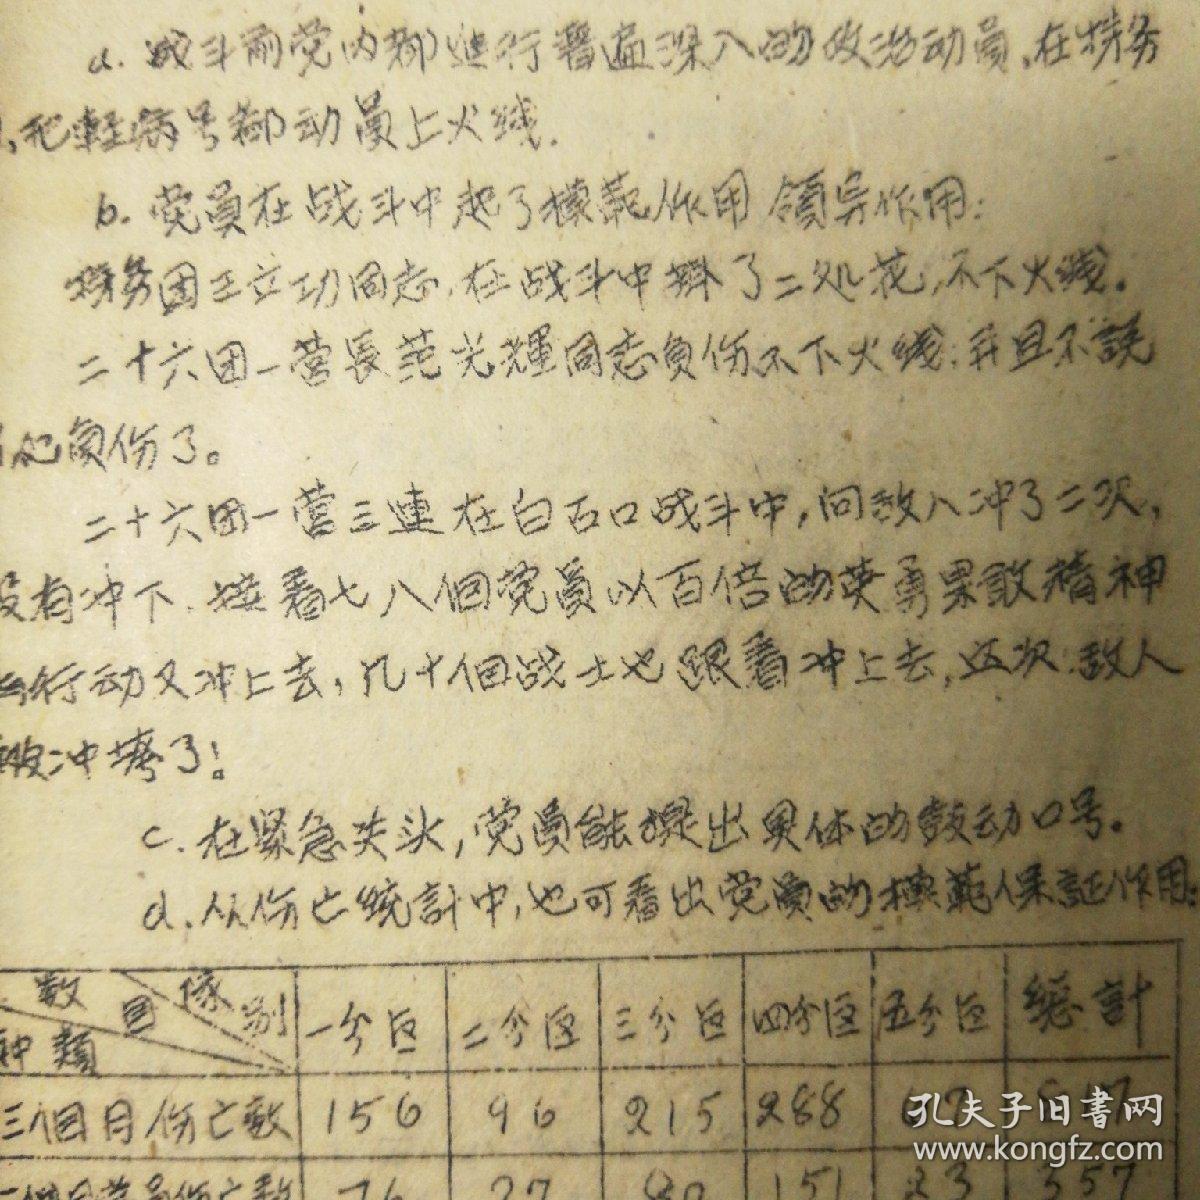 a. 战斗前党内都进行普遍深入的政治动员,在特务
,把軽病号都动員上火线.
b. 党員在战斗中起了模范作用 領导作用:
特务团王立功同志,在战斗中掛了二处花,不下火线。
二十六团一营長范光輝同志負伤不下火线;并且不説
他負伤了。
二十六团一营三連在白石口战斗中,向敌人冲了二次,
没有冲下.接着七八個党員以百倍的英勇果敢精神
行动又冲上去,几十個战士也跟着冲上去,这次敌人
被冲垮了!
c. 在緊急关头,党員能提出具体的鼓动口号。
d. 从伤亡统計中,也可看出党員的模范保証作用:
数 目 隊別 一分区 二分区 三分区 四分区 五分区 總計
种類
三個月伤亡数 156 96 215 288
党員伤亡数 76 27 151 23 357
孔夫子旧書网
www.kongfz.com